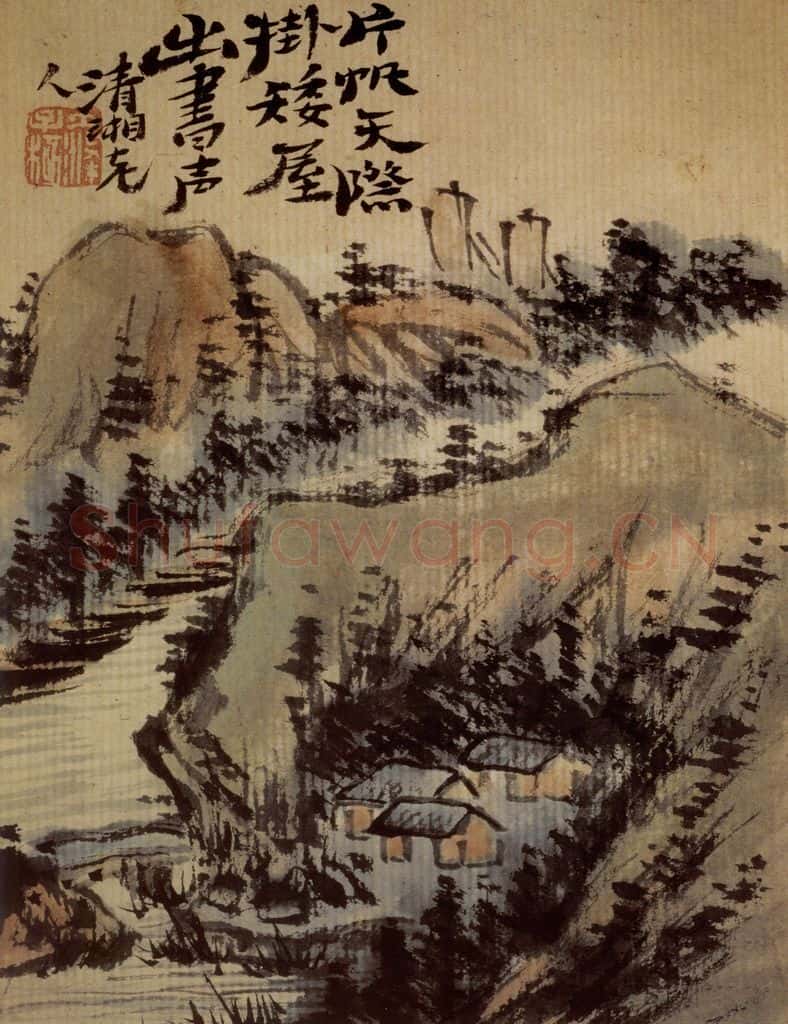 片帆天際
掛矮屋
出書声
清湘老
人
Shufawang.CN